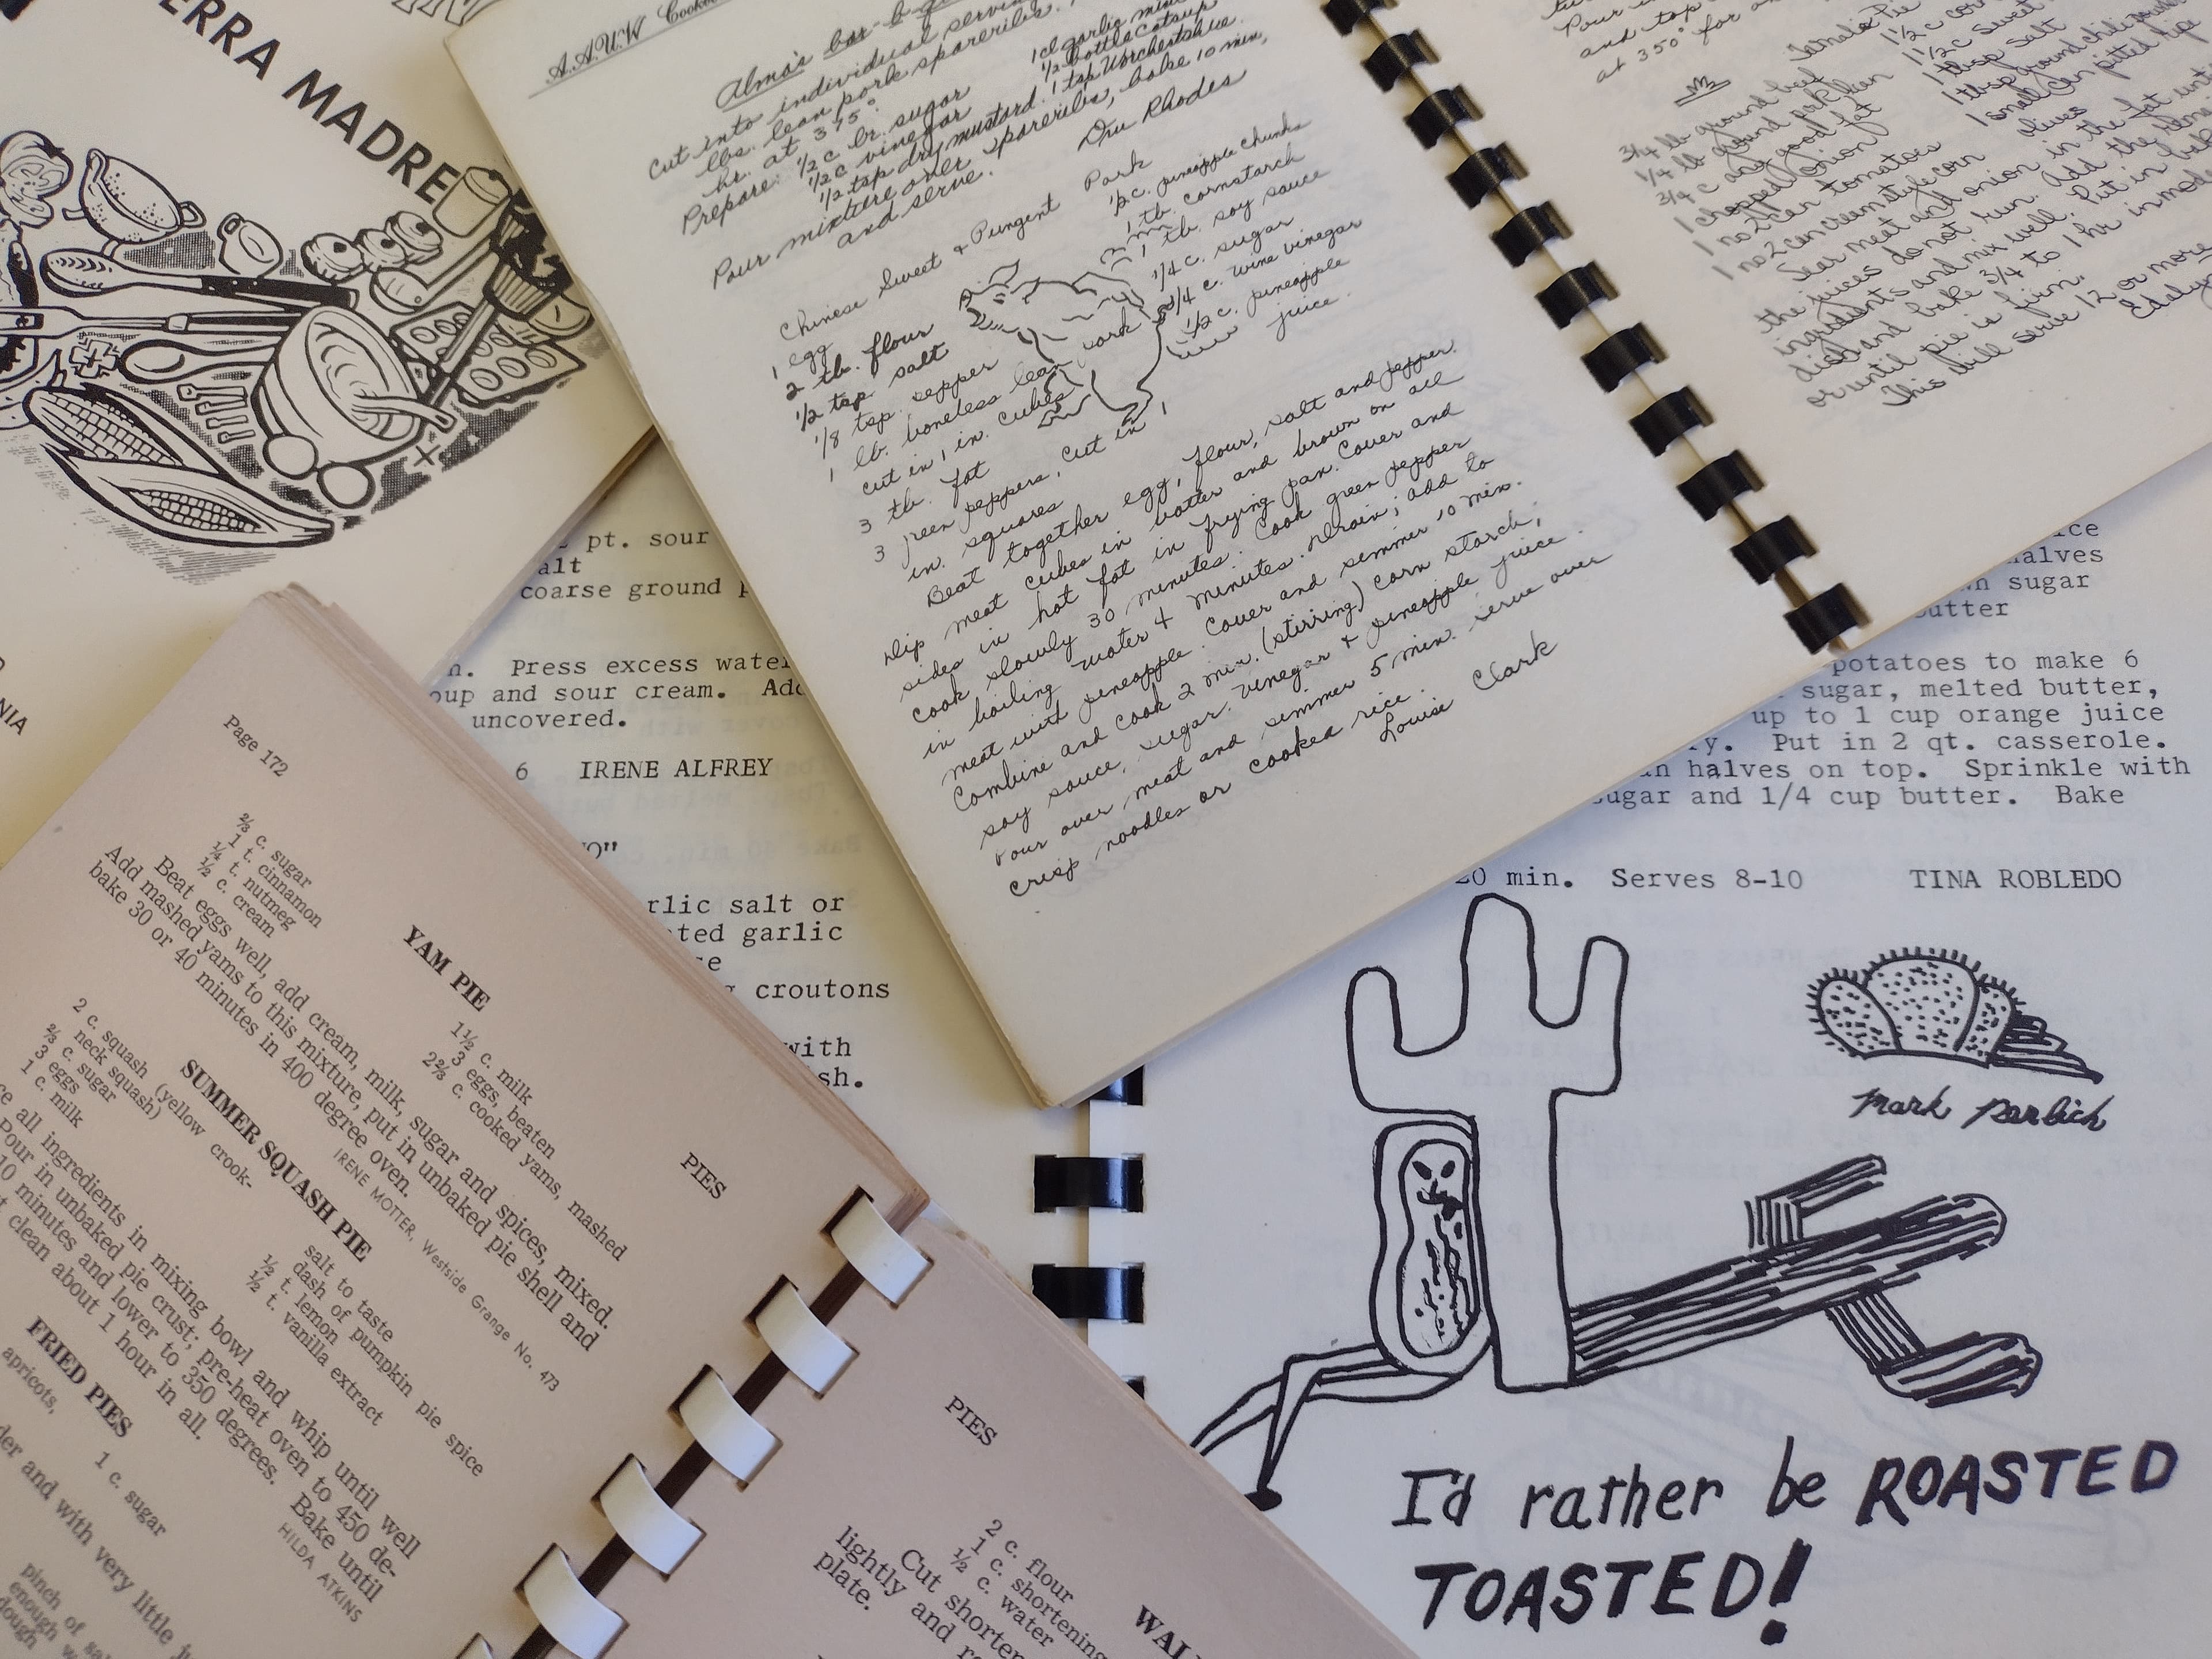 ERRA MADRE
NIA
A.A.U.W. Cookbo
Alma's bar-b-q
Cut into individual serving
lbs. lean pork spareribs.
hr. at 375°.
Prepare: 1/2 c br. sugar
1/2 c vinegar
1/2 tsp dry mustard.
1 cl garlic min
1/2 bottle Catsup
1 tsp Worchestshire
Pour mixture over spareribs, bake 10 min,
and serve.
Dru Rhodes
Chinese Sweet & Pungent Pork
1 egg
2 tb. flour
1/2 tsp salt
1/8 tsp. pepper
1 lb. boneless lean pork
cut in 1 in. cubes
3 tb. fat
3 green peppers, cut in 1
in. squares
1/2 c. pineapple chunks
1 tb. cornstarch
1 tb. soy sauce
1/4 c. sugar
3/4 c. wine vinegar
1/2 c. pineapple
juice.
Beat together egg, flour, salt and pepper.
Dip meat cubes in batter and brown on all
sides in hot fat in frying pan. Cover and
cook slowly 30 minutes. Cook green pepper
in boiling water 4 minutes. Drain; add to
meat with pineapple. Cover and simmer 10 min.
Combine and cook 2 min. (stirring) corn starch,
soy sauce, sugar, vinegar & pineapple juice.
Pour over meat and simmer 5 min. serve over
crisp noodles or cooked rice.
Louise Clark
Pour
and top
at 350° for
Tamale Pie
3/4 lb ground beef
1/4 lb ground pork lean
3/4 c any good fat
1 chopped onion
1 no 2 can tomatoes
1 no 2 can cream style corn
1 1/2 c
1 1/2 c sweet
1 tbsp salt
1 tbsp ground chile
1 small can pitted ripe
olives
Sear meat and onion in the fat unti
the juices do not run. Add the
ingredients and mix well. Put in bak
dish and bake 3/4 to 1 hr in mode
or until pie is firm.
This will serve 12 or more
pt. sour
alt
coarse ground p
n. Press excess water
oup and sour cream. Add
uncovered.
6 IRENE ALFREY
O"
rlic salt or
ted garlic
se
g croutons
with
sh.
ice
halves
wn sugar
butter
potatoes to make 6
sugar, melted butter,
up to 1 cup orange juice
ry. Put in 2 qt. casserole.
an halves on top. Sprinkle with
sugar and 1/4 cup butter. Bake
20 min. Serves 8-10 TINA ROBLEDO
Mark Perlich
I'd rather be ROASTED
TOASTED!
Page 172
PIES
YAM PIE
⅔ c. sugar
1 t. cinnamon
¼ t. nutmeg
½ c. cream
1½ c. milk
3 eggs, beaten
2⅔ c. cooked yams, mashed
Beat eggs well, add cream, milk, sugar and spices, mixed.
Add mashed yams to this mixture, put in unbaked pie shell and
bake 30 or 40 minutes in 400 degree oven.
IRENE MOTTER, Westside Grange No. 473
SUMMER SQUASH PIE
2 c. squash (yellow crook-
neck squash)
⅔ c. sugar
3 eggs
1 c. milk
salt to taste
dash of pumpkin pie spice
½ t. lemon
½ t. vanilla extract
ce all ingredients in mixing bowl and whip until well
Pour in unbaked pie crust; pre-heat oven to 450 de-
10 minutes and lower to 350 degrees. Bake until
t clean about 1 hour in all.
HILDA ATKINS
FRIED PIES
apricots,
1 c. sugar
pinch of sa
enough w
dough
der and with very little ju
PIES
WAL
2 c. flour
1 c. shortening
½ c. water
Cut shorten
lightly and ro
plate.